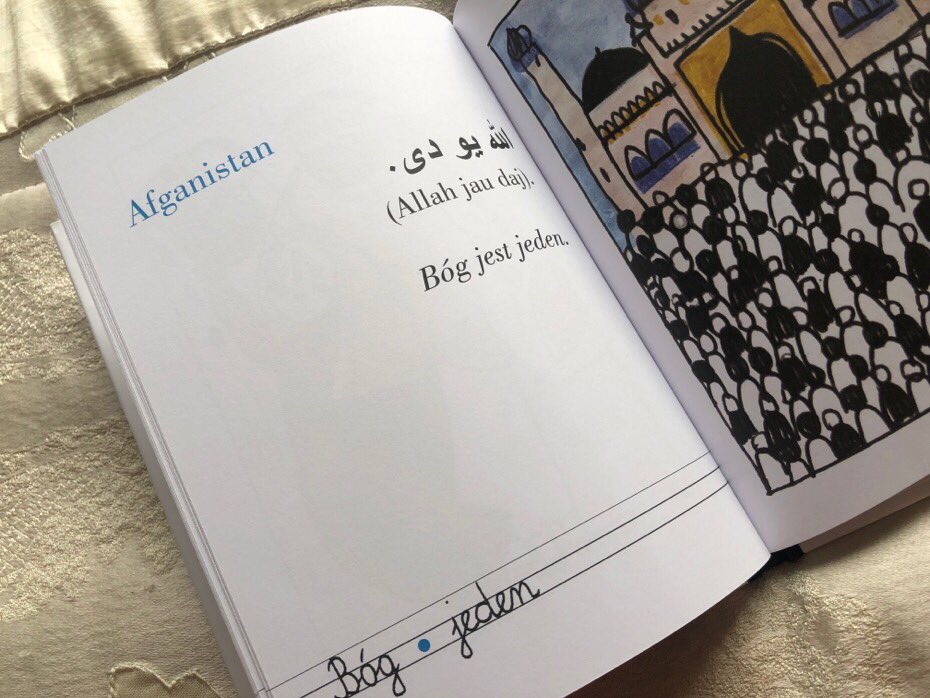 Afganistan
الله یو دی.
(Allah jau daj).
Bóg jest jeden.
Bóg • jeden